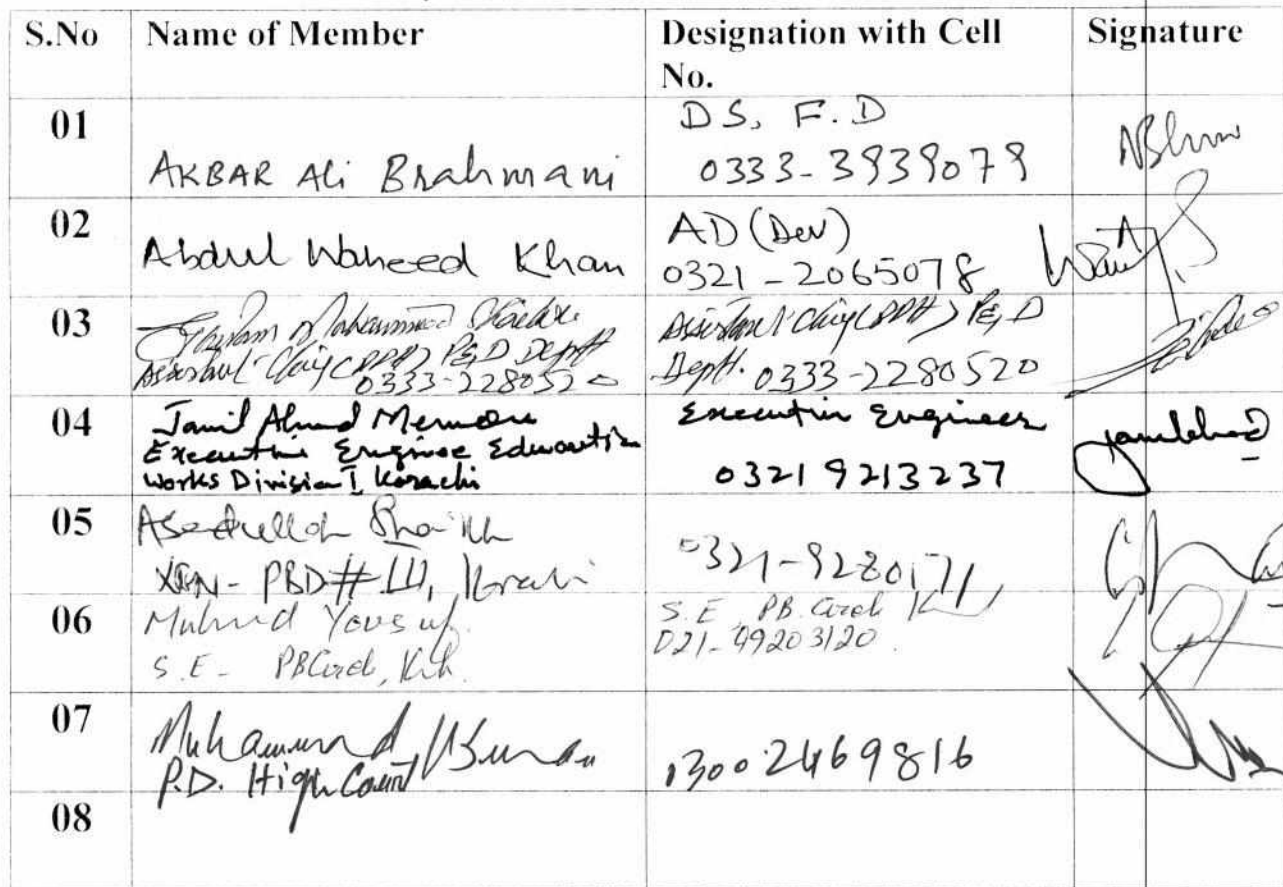 S.No Name of Member Designation with Cell No. Signature
01 AKBAR Ali Brahmani DS, F.D
0333-3939079
02 Abdul Waheed Khan AD (Dev)
0321-2065078
03 Mohammad
Assistant Chief (PPH) P&D Deptt
0333-2280520
Assistant Chief (PPH) P&D
Deptt. 0333-2280520
04 Jamil Ahmed Memon
Executive Engineer Education
Works Division I, Karachi
Executive Engineer
0321 9213237
05 Asadullah Shaikh
XEN - PBD # III, Karachi
0321-9280171
06 Muhmd Yousuf
S.E - PB Circle, Kh.
S.E PB. Circle
021-99203120
07 Muhammad
P.D. High Court
03002469816
08